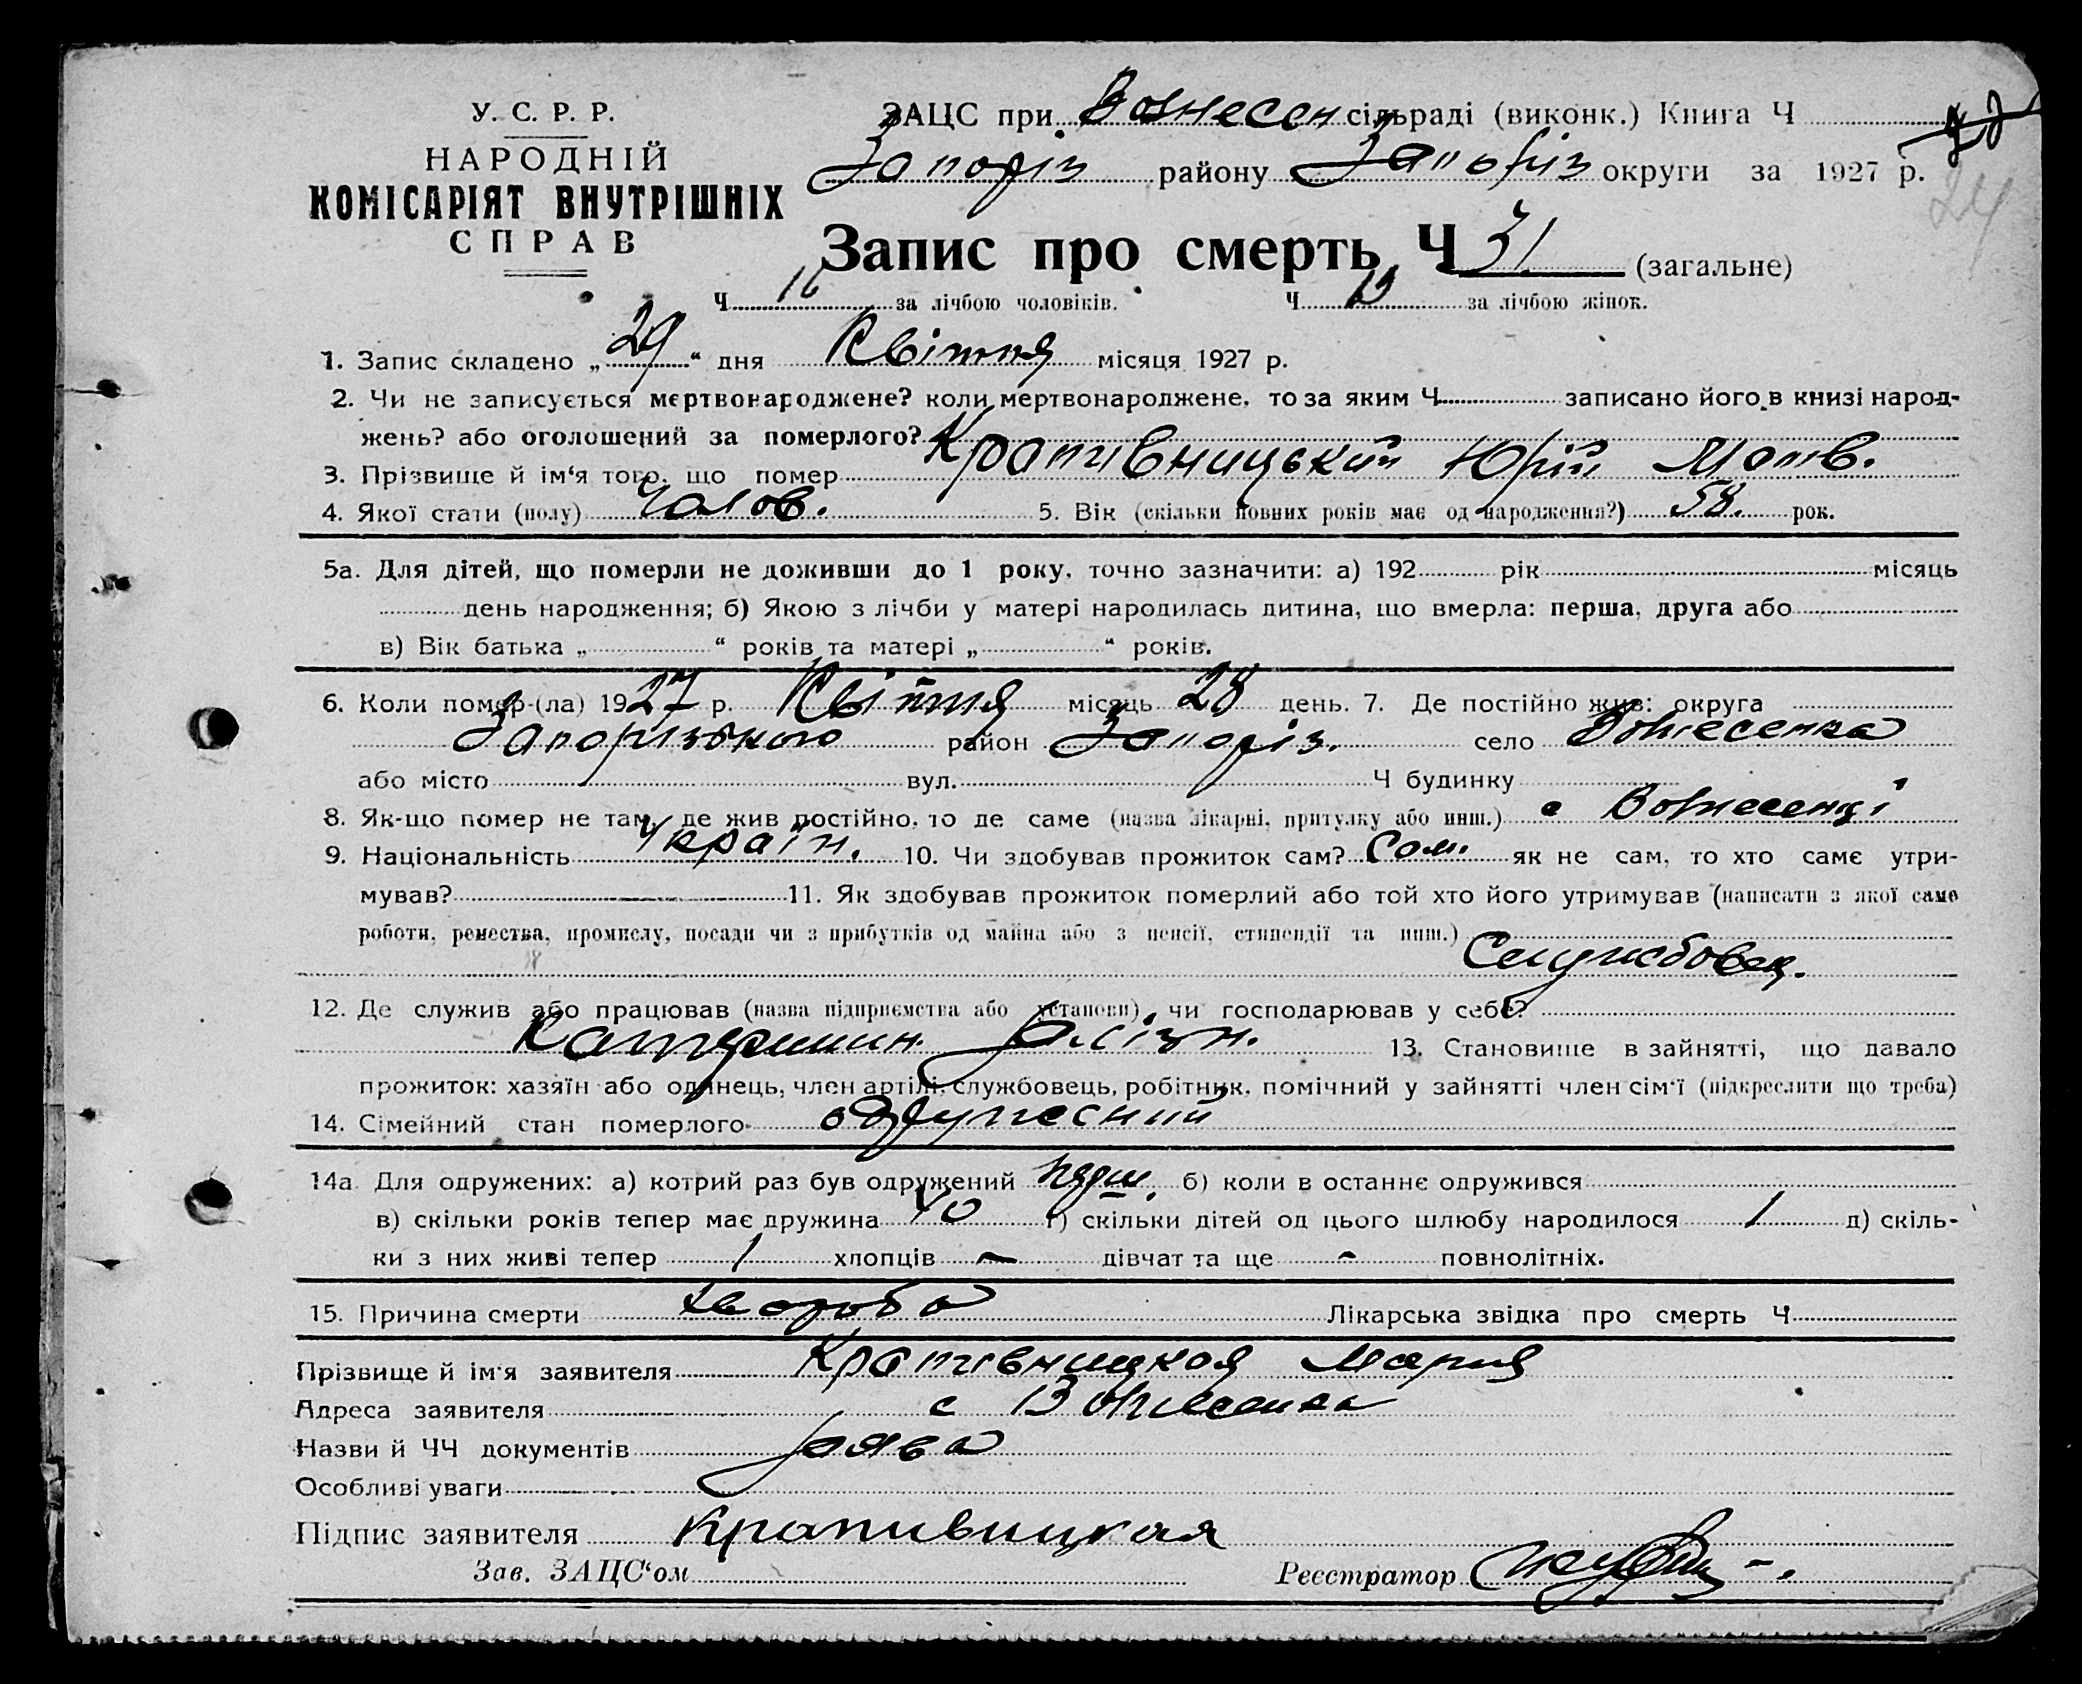 У. С. Р. Р.
НАРОДНІЙ
КОМІСАРІЯТ ВНУТРІШНІХ
СПРАВ
ЗАЦС при Вознесен сільраді (виконк.) Книга Ч
Запоріз району Запоріз округи за 1927 р.
24
Запис про смерть Ч 31 (загальне)
Ч 16 за лічбою чоловіків. Ч 15 за лічбою жінок.
1. Запис складено „29“ дня Квітня місяця 1927 р.
2. Чи не записується мертвонароджене? коли мертвонароджене, то за яким Ч записано його в книзі народ-
жень? або оголошений за померлого?
3. Прізвище й ім‘я того, що помер Крапивницький Юрій Матв.
4. Якої стати (полу) Чолов. 5. Вік (скільки повних років має од народження?) 58. рок.
5а. Для дітей, що померли не доживши до 1 року, точно зазначити: а) 192 рік місяць
день народження; б) Якою з лічби у матері народилась дитина, що вмерла: перша, друга або
в) Вік батька „ “ років та матері „ “ років.
6. Коли помер-(ла) 1927 р. Квітня місяць 28 день. 7. Де постійно жив: округа
Запорізького район Запоріз. село Вознесенка
або місто вул. Ч будинку
8. Як-що помер не там, де жив постійно, то де саме (назва лікарні, притулку або инш.) с Вознесенці
9. Національність Україн. 10. Чи здобував прожиток сам? Сам. як не сам, то хто саме утри-
мував? 11. Як здобував прожиток померлий або той хто його утримував (написати з якої саме
роботи, ремества, промислу, посади чи з прибутків од майна або з пенсії, стипендії та инш.)
Службовец.
12. Де служив або працював (назва підприємства або установи), чи господарював у себе?
Катеринин. Залізн. 13. Становище в зайнятті, що давало
прожиток: хазяїн або одинець, член артілі, службовець, робітник, помічний у зайнятті член сім‘ї (підкреслити що треба)
14. Сімейний стан померлого одружений
14а Для одружених: а) котрий раз був одружений перш. б) коли в останнє одружився
в) скільки років тепер має дружина 40 г) скільки дітей од цього шлюбу народилося 1 д) скіль-
ки з них живі тепер 1 хлопців — дівчат та ще - повнолітніх.
15. Причина смерти хвороба Лікарська звідка про смерть Ч
Прізвище й ім‘я заявителя Крапивницкая Мария
Адреса заявителя с Вознесенка
Назви й ЧЧ документів Заява
Особливі уваги
Підпис заявителя Крапивницкая
Зав. ЗАЦС‘ом Реєстратор